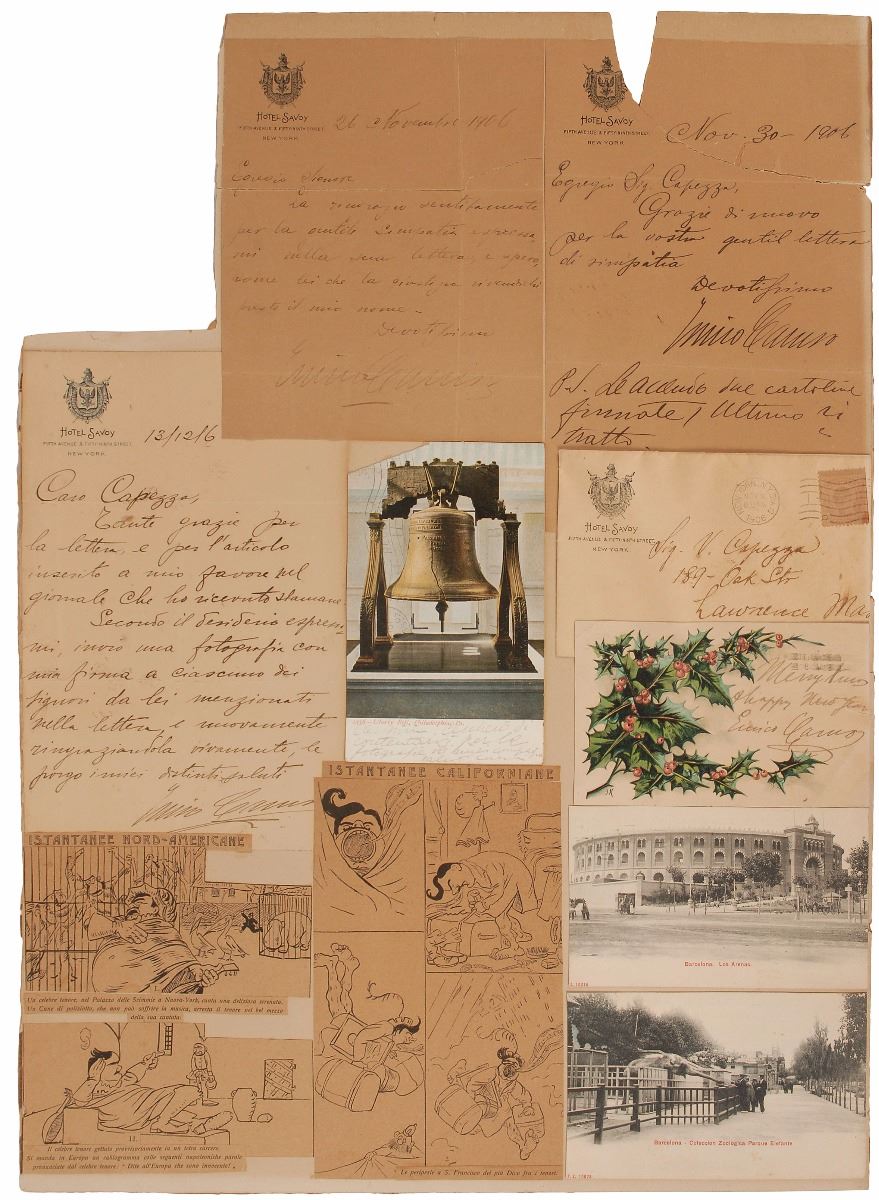 HOTEL SAVOY
FIFTH AVENUE & FIFTY-NINTH STREET.
NEW YORK.
26 Novembre 1906
Egregio Signore
La ringrazio sentitamente
per la gentile simpatia espressa-
mi nella sua lettera, e spero,
come lei che la giustizia
presto il mio nome.
Devotissimo
Enrico Caruso
HOTEL SAVOY
FIFTH AVENUE & FIFTY-NINTH STREET.
NEW YORK.
Nov. 30 - 1906
Egregio Sig. Capezza,
Grazie di nuovo
per la vostra gentil lettera
di simpatia
Devotissimo
Enrico Caruso
P.S. Le accludo due cartoline
firmate / Ultimo ri
tratto
HOTEL SAVOY
FIFTH AVENUE & FIFTY-NINTH STREET.
NEW YORK.
13/12/6
Caro Capezza,
Tante grazie per
la lettera, e per l'articolo
inserito a mio favore nel
giornale che ho ricevuto stamane.
Secondo il desiderio espresso-
mi, invio una fotografia con
mia firma a ciascuno dei
signori da lei menzionati
nella lettera e nuovamente
ringraziandola vivamente, le
porgo i miei distinti saluti
Enrico Caruso
HOTEL SAVOY
FIFTH AVENUE & FIFTY-NINTH STREET.
NEW YORK.
1906
Sig. V. Capezza
189 - Oak Str
Lawrence Mas
Liberty Bell, Philadelphia, Pa.
Merry Xmas
Happy New Year
Enrico Caruso
JK
ISTANTANEE NORD-AMERICANE
Un celebre tenore, nel Palazzo delle Scimmie a Nuova-York, canta una deliziosa serenata.
Un Cane di poliziotto, che non può soffrire la musica, arresta il tenore nel bel mezzo
della sua cantata.
II.
Il celebre tenore gettato provvisoriamente in un tetro carcere.
Si manda in Europa un cablogramma colle seguenti napoleoniche parole
pronunciate dal celebre tenore: "Dite all'Europa che sono innocente!"
ISTANTANEE CALIFORNIANE
Le peripezie a S. Francisco del più Divo fra i tenori.
Barcelona. Las Arenas.
Barcelona - Coleccion Zoologica Parque Elefante